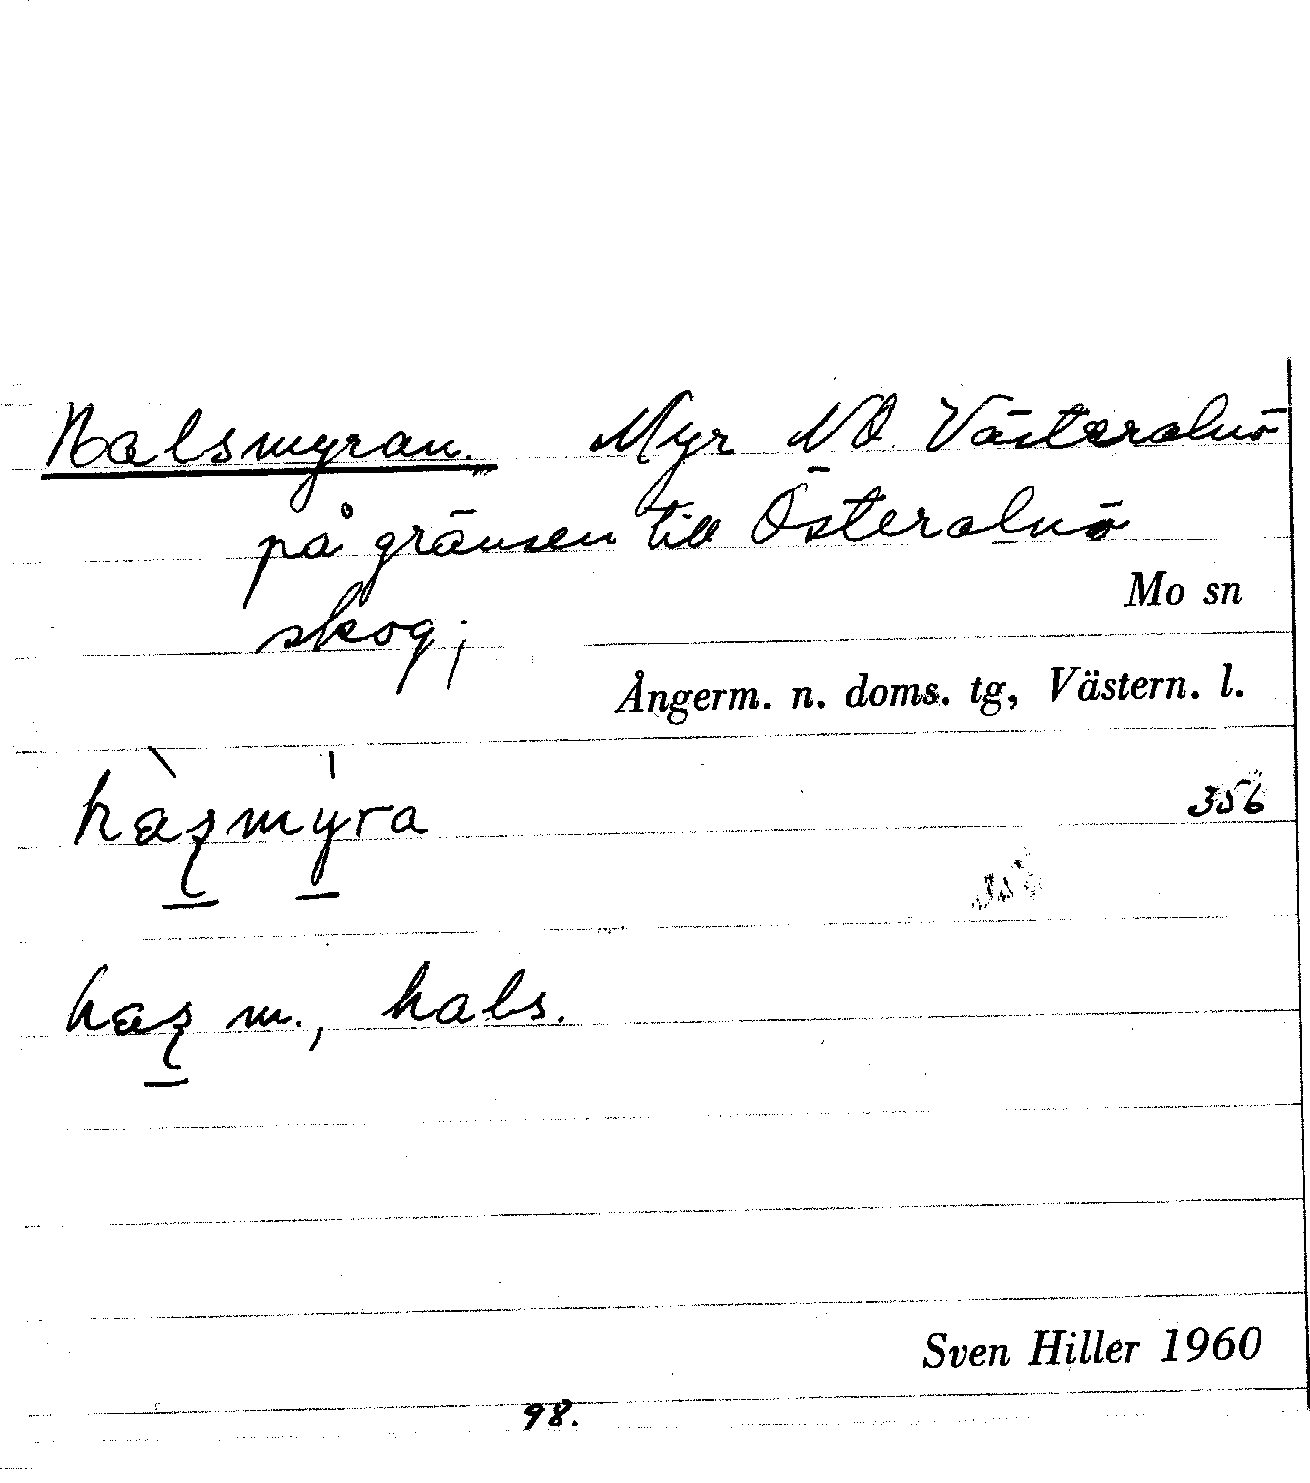 Halsmyran. Myr NO Västeralnö
på gränsen till Österalnö
Mo sn
skog;
Ångerm. n. doms. tg, Västern. l.
356
m., hals.
Sven Hiller 1960
98.